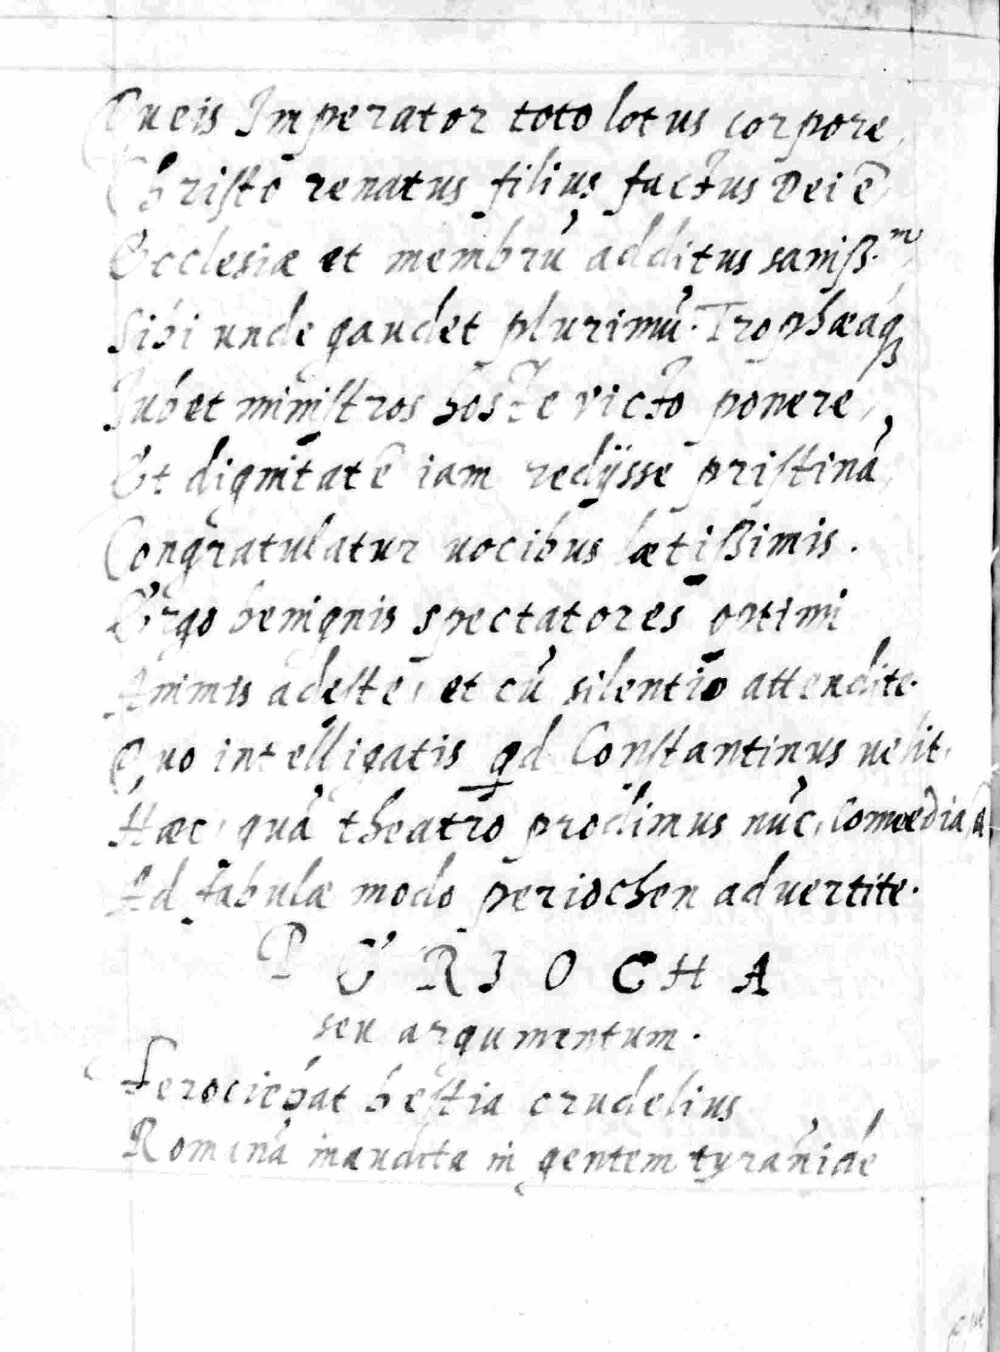 Queis Imperator toto lotus corpore,
Christo renatus filius factus Dei ẽ,
Ecclesiæ et membrũ additus saniß.m̃
Sibi unde gaudet plurimũ. Trophæaq́ꝫ
Iubet miniſtros hoste victo ponere,
Et dignitatẽ iam redijsse priſtinã,
Congratulatur uocibus lætißimis.
Ergo benignis spectatores optimi
Animis adeſte, et cũ silentio attendite.
Quo intelligatis qd Conſtantinus uelit,
Hæc, quã theatro prodimus nũc, Comœdia,
Ad fabulæ modo periochen aduertite.
PERIOCHA
seu argumentum.
Ferociebat beſtia crudelius
Romanã inaudita in gentem tyrãnide